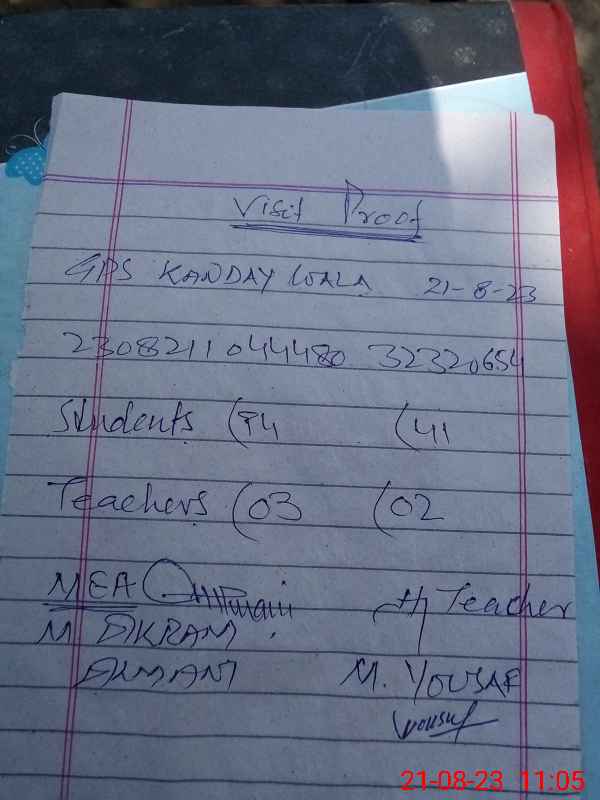 Visit Proof
GPS KANDAY WALA 21-8-23
230821104480 32320654
Students (84 (41
Teachers (03 (02
MEA
M IKRAM
ALMANI
H Teacher
M. YOUSAF
Yousuf
21-08-23 11:05